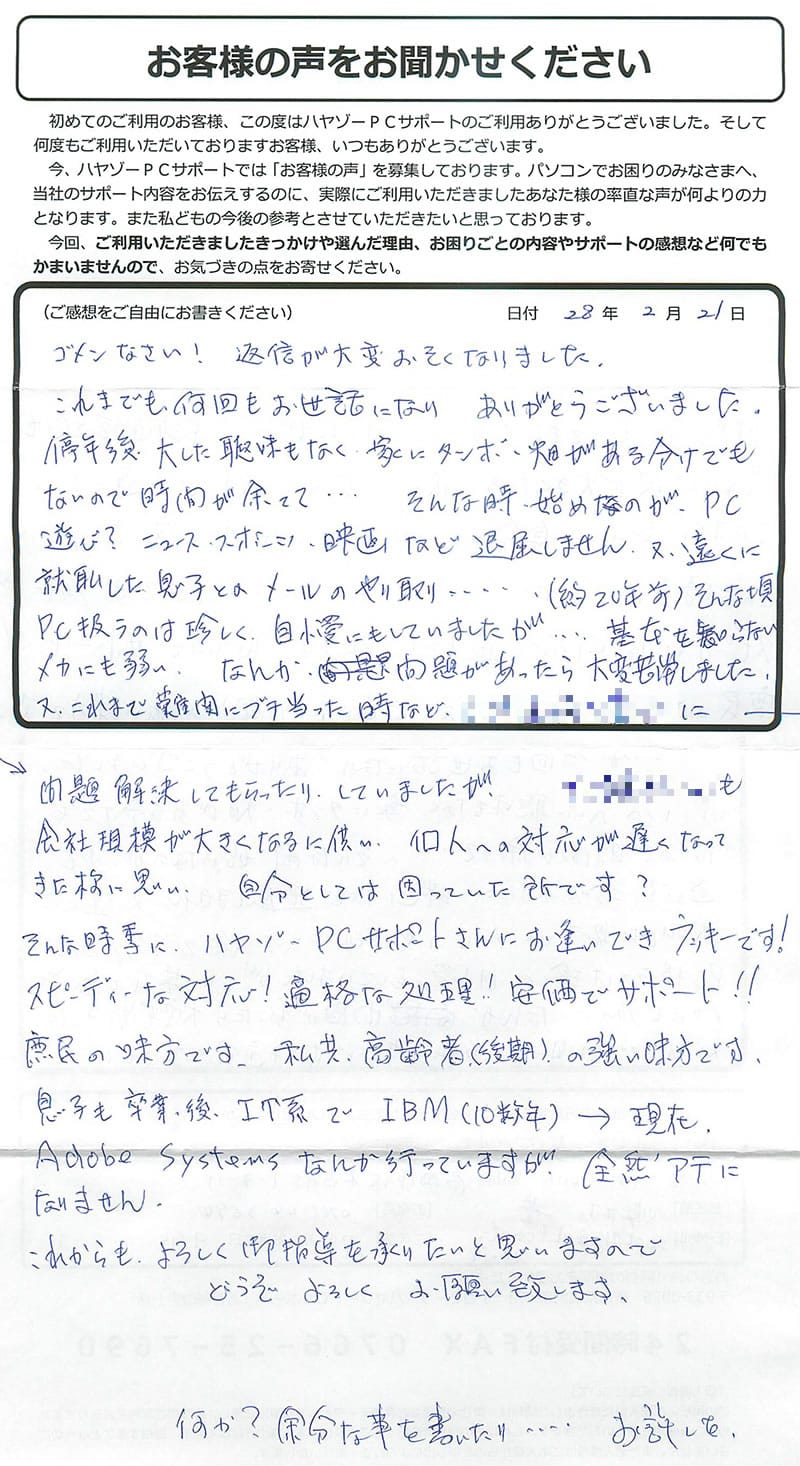 お客様の声をお聞かせください
初めてのご利用のお客様、この度はハヤゾーPCサポートのご利用ありがとうございました。そして
何度もご利用いただいておりますお客様、いつもありがとうございます。
今、ハヤゾーPCサポートでは「お客様の声」を募集しております。パソコンでお困りのみなさまへ、
当社のサポート内容をお伝えするのに、実際にご利用いただきましたあなた様の率直な声が何よりの力
となります。また私どもの今後の参考とさせていただきたいと思っております。
今回、ご利用いただきましたきっかけや選んだ理由、お困りごとの内容やサポートの感想など何でも
かまいませんので、お気づきの点をお寄せください。
(ご感想をご自由にお書きください) 日付 28 年 2 月 21 日
ゴメンなさい! 返信が大変おそくなりました.
これまでも、何回もお世話になり ありがとうございました.
停年後、大した趣味もなく、家にタンボ・畑がある分けでも
ないので時間が余って・・・ そんな時、始めたのが、PC
遊び? ニュース・スポーツ・映画など退屈しません. 又、遠くに
就職した息子とのメールのやり取り・・・・・(約20年前) そんな頃
PC扱うのは珍しく、自慢にもしていましたが・・・ 基本を知らない
メカにも弱い. なんか、問題があったら大変苦労しました.
又、これまで難関にブチ当った時など、 に
問題解決してもらったり、していましたが も
会社規模が大きくなるに供い、個人への対応が遅くなって
きた様に思い、 自分としては困っていた所です?
そんな時季に、ハヤゾーPCサポートさんにお逢いできラッキーです!
スピーディーな対応! 適格な処理!! 安価でサポート!!
庶民の味方です. 私共、高齢者(後期)の強い味方です.
息子も卒業後、IT系で IBM(10数年) → 現在.
Adobe Systems なんか行っていますが! 全然アテに
なりません.
これからも、よろしく御指導を承りたいと思いますので
どうぞ よろしく お願い致します.
何か? 余分な事を書いたり・・・・ お許しを.